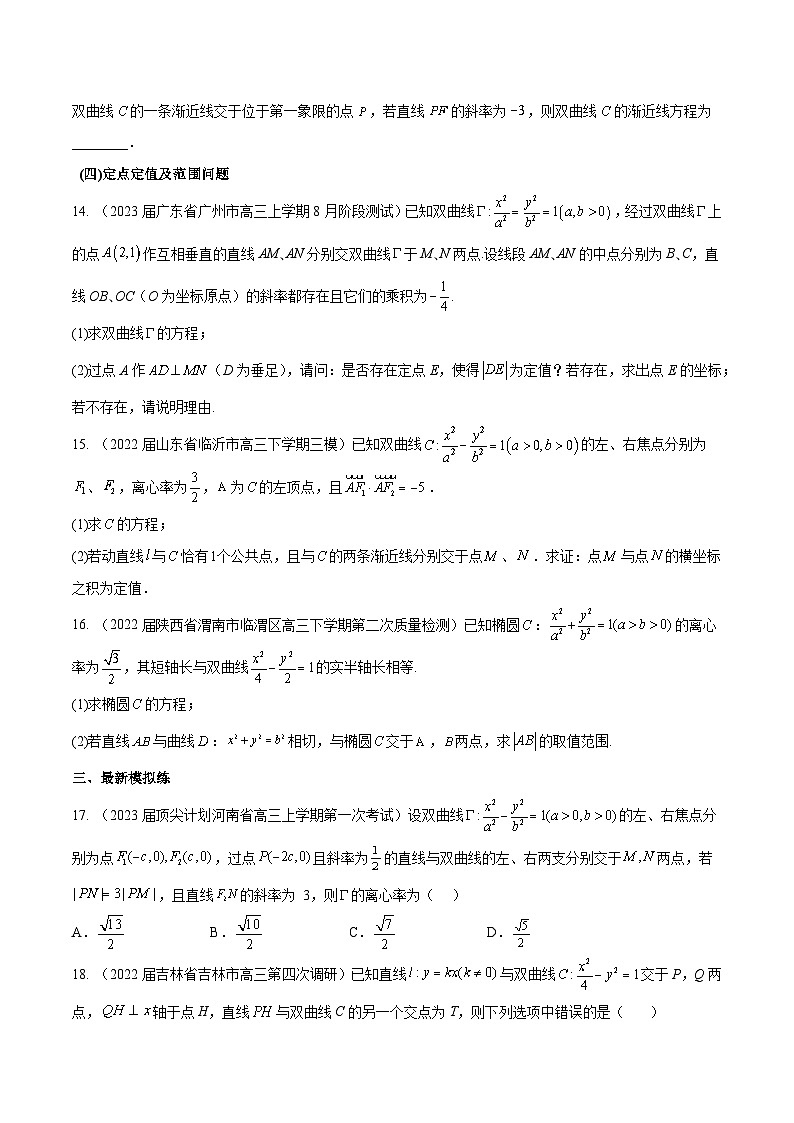 双曲线 C 的一条渐近线交于位于第一象限的点 P ，若直线 PF 的斜率为 −3，则双曲线 C 的渐近线方程为
________．
(四)定点定值及范围问题
14. （2023届广东省广州市高三上学期8月阶段测试）已知双曲线 Γ: x²/a² = y²/b² = 1(a,b > 0) ，经过双曲线 Γ 上
的点 A(2,1) 作互相垂直的直线 AM、AN 分别交双曲线 Γ 于 M、N 两点.设线段 AM、AN 的中点分别为 B、C，直
线 OB、OC（O 为坐标原点）的斜率都存在且它们的乘积为 −1/4 .
(1)求双曲线 Γ 的方程；
(2)过点 A 作 AD ⊥ MN（D 为垂足），请问：是否存在定点 E，使得 |DE| 为定值？若存在，求出点 E 的坐标；
若不存在，请说明理由.
15. （2022届山东省临沂市高三下学期三模）已知双曲线 C: x²/a² − y²/b² = 1(a > 0, b > 0) 的左、右焦点分别为
F₁、F₂ ，离心率为 3/2 ，A 为 C 的左顶点，且 AF₁ · AF₂ = −5．
(1)求 C 的方程；
(2)若动直线 l 与 C 恰有1个公共点，且与 C 的两条渐近线分别交于点 M 、N ．求证：点 M 与点 N 的横坐标
之积为定值．
16. （2022届陕西省渭南市临渭区高三下学期第二次质量检测）已知椭圆 C： x²/a² + y²/b² = 1(a > b > 0) 的离心
率为 √3/2 ，其短轴长与双曲线 x²/4 − y²/2 = 1 的实半轴长相等.
(1)求椭圆 C 的方程；
(2)若直线 AB 与曲线 D： x² + y² = b² 相切，与椭圆 C 交于 A ，B 两点，求 |AB| 的取值范围.
三、最新模拟练
17. （2023届顶尖计划河南省高三上学期第一次考试）设双曲线 Γ: x²/a² − y²/b² = 1(a > 0, b > 0) 的左、右焦点分
别为点 F₁(−c,0), F₂(c,0) ，过点 P(−2c,0) 且斜率为 1/2 的直线与双曲线的左、右两支分别交于 M , N 两点，若
|PN|= 3|PM| ，且直线 F₂N 的斜率为 3，则 Γ 的离心率为（ ）
A．√13/2 B．√10/2 C．√7/2 D．√5/2
18. （2022届吉林省吉林市高三第四次调研）已知直线 l : y = kx(k ≠ 0) 与双曲线 C: x²/4 − y² = 1 交于 P，Q 两
点，QH ⊥ x 轴于点 H，直线 PH 与双曲线 C 的另一个交点为 T，则下列选项中错误的是（ ）